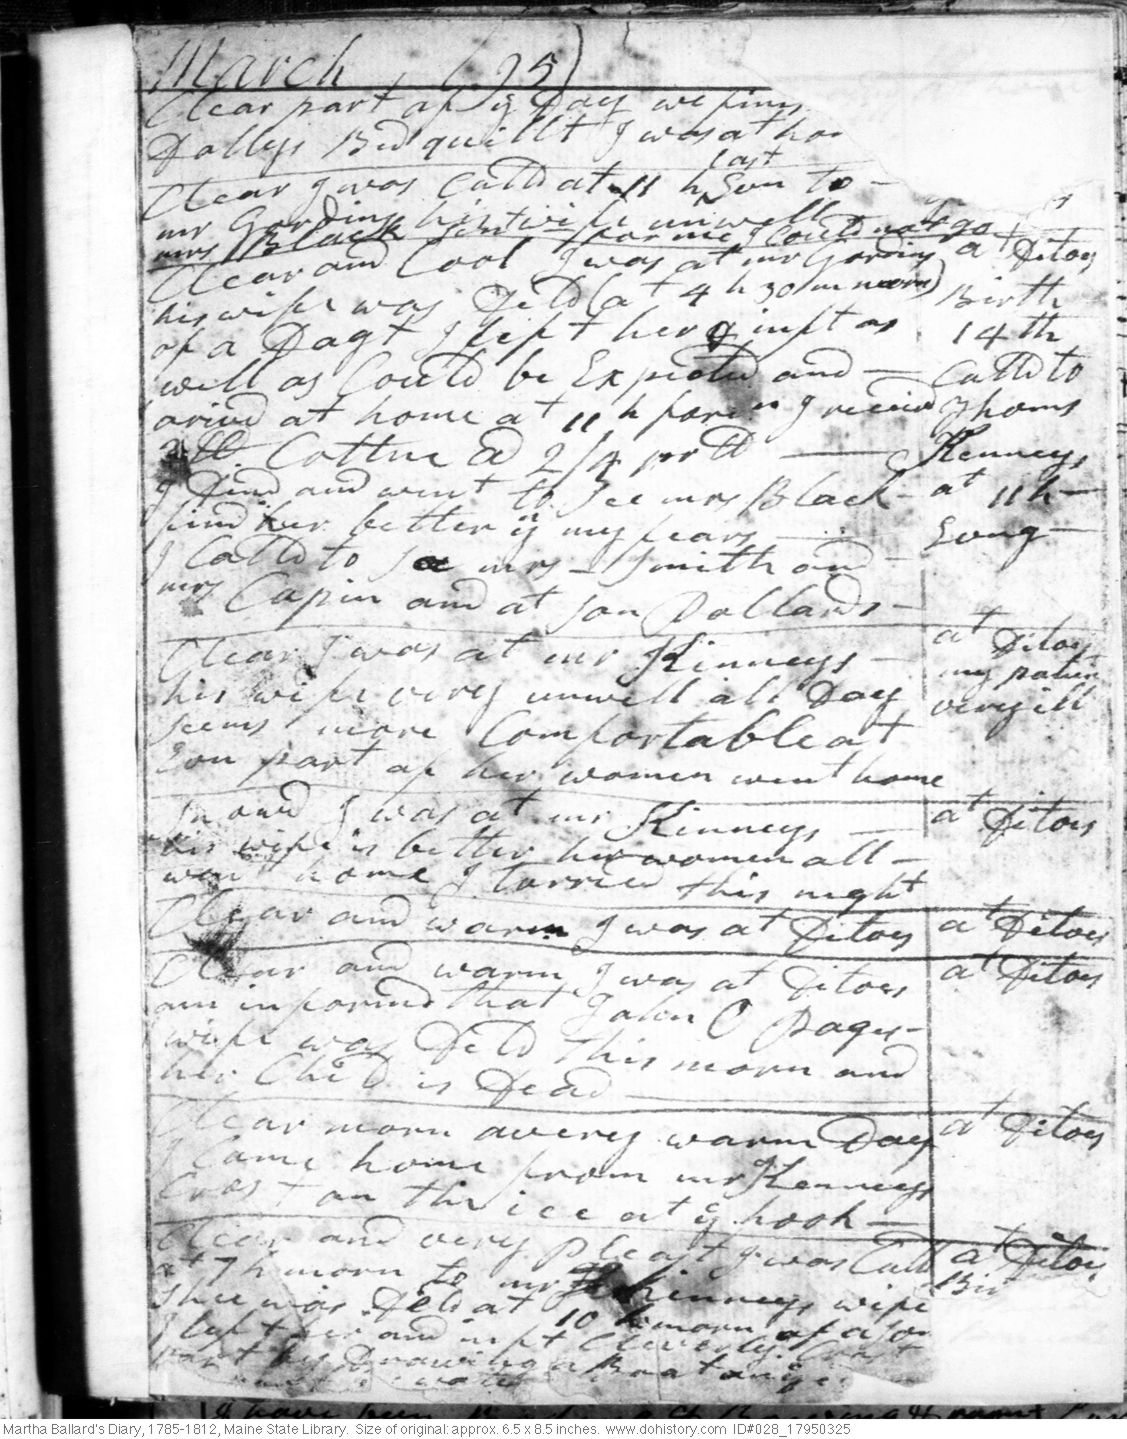 March (95)
Clear part of ye Day we
Dollys Bed quillt I was at
last
Clear I was Calld at 11 h Son to
mr Gordins his wife unwell
mrs Black sent for me I Could not go
Clear and Cool I was at mr Gordins
his wife was Deld (at 4 h 30 m morn)
of a Dagt I left her & inft as
well as Could be Expected and
arivd at home at 11 h foren I receivd
Cottne @ 2/4 pr ll
I Dind and went to See mrs Black
find her better yn my fears
I Calld to See mrs Smith and
mrs Capin and at Son Pollards
Clear I was at mr Kinneys
his wife very unwell all Day
Seems more Comfortable at
Son part of her women went home
Snowd I was at mr Kinneys
his wife is better her women all
went home I tarried this night
Clear and warm I was at Ditoes
Clear and warm I was at Ditoes
am informd that John O Pages
wife was Deld this morn and
her Child is Dead
Clear morn a verry warm Day
I Came home from mr Kenneys
Crost on the ice at ye hook
Clear and very Pleast I was Calld
at 7 h morn to mr Kinneys wife
Shee was Deld at 10 h morn of a son
I left her and inft Cleverly Crost
part by Drawing a Boat on ye
at Ditoes
Birth
14th
Calld to
Thoms
Kenneys
at 11 h
Evng
at Ditoes
my patint
very ill
at Ditoes
at Ditoes
at Ditoes
at Ditoes
at Ditoes
Bir
Martha Ballard's Diary, 1785-1812, Maine State Library. Size of original: approx. 6.5 x 8.5 inches. www.dohistory.com ID#028_17950325